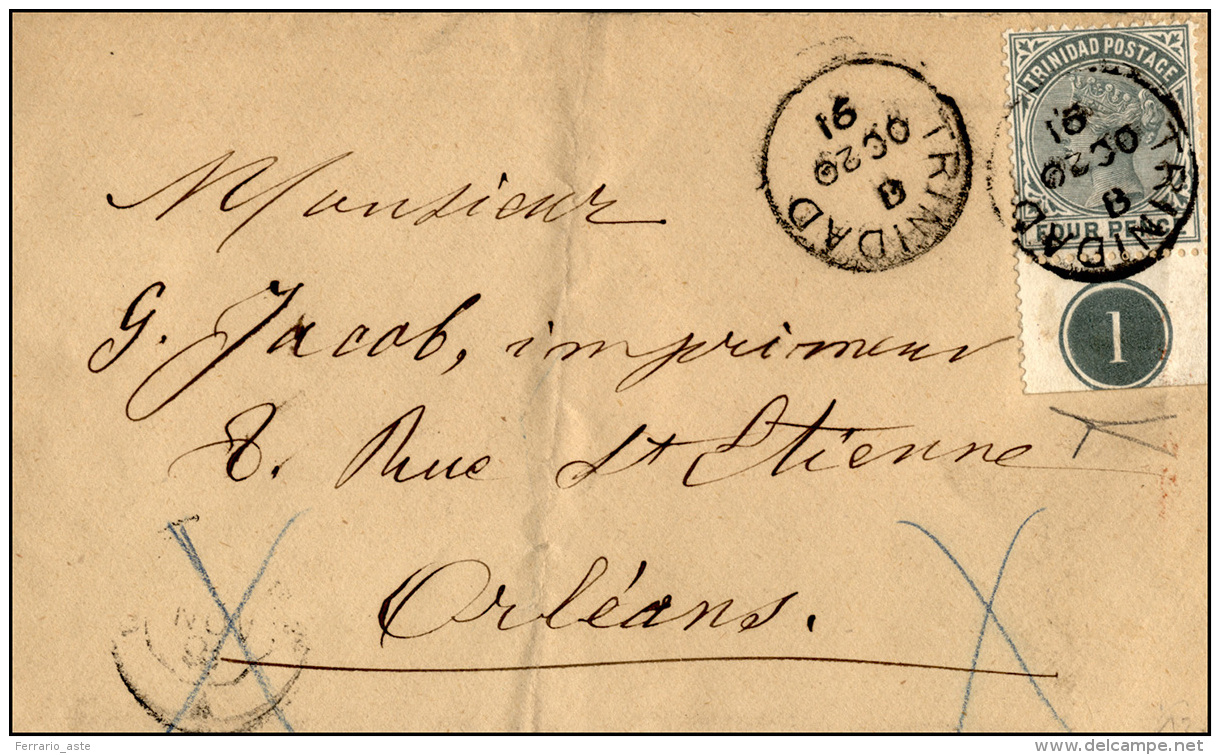 TRINIDAD
B
OC 26
91
TRINIDAD POSTAGE
FOUR PENCE
TRINIDAD
B
OC 26
91
1
Monsieur
G. Jacob, imprimeur
8. Rue St Etienne
Orléans.
NOV
Ferrario_aste
www.delcampe.net